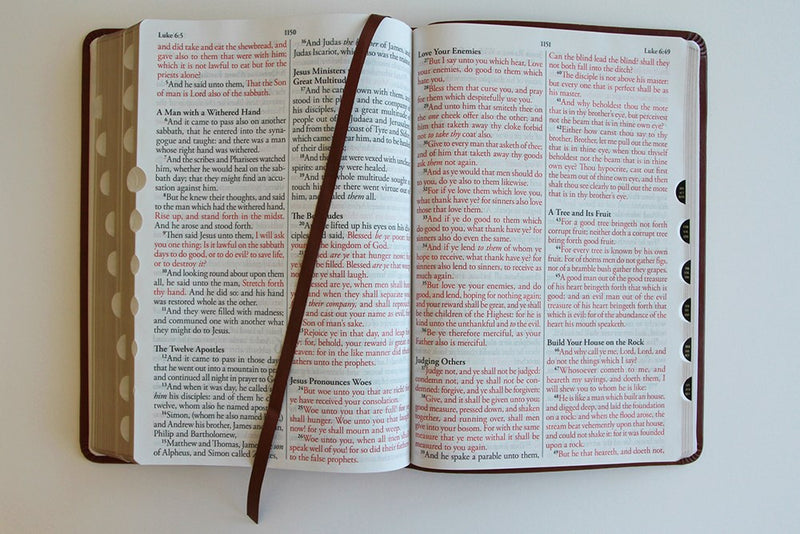 Luke 6:5
1150
and did take and eat the shewbread, and
gave also to them that were with him;
which it is not lawful to eat but for the
priests alone?
⁵And he said unto them, That the Son
of man is Lord also of the sabbath.
A Man with a Withered Hand
⁶And it came to pass also on another
sabbath, that he entered into the syna-
gogue and taught: and there was a man
whose right hand was withered.
⁷And the scribes and Pharisees watched
him, whether he would heal on the sab-
bath day; that they might find an accu-
sation against him.
⁸But he knew their thoughts, and said
to the man which had the withered hand,
Rise up, and stand forth in the midst.
And he arose and stood forth.
⁹Then said Jesus unto them, I will ask
you one thing; Is it lawful on the sabbath
days to do good, or to do evil? to save life,
or to destroy it?
¹⁰And looking round about upon them
all, he said unto the man, Stretch forth
thy hand. And he did so: and his hand
was restored whole as the other.
¹¹And they were filled with madness;
and communed one with another what
they might do to Jesus.
The Twelve Apostles
¹²And it came to pass in those days,
that he went out into a mountain to pray,
and continued all night in prayer to God.
¹³And when it was day, he called
him his disciples: and of them he
twelve, whom also he named apostles;
¹⁴Simon, (whom he also named
and Andrew his brother, James and John,
Philip and Bartholomew,
¹⁵Matthew and Thomas, James the son
of Alphaeus, and Simon called
¹⁶And Judas the brother of James, and
Judas Iscariot, which also was the traitor.
Jesus Ministers
Great Multitude
¹⁷And he came down with them, and
stood in the plain, and the company of
his disciples, and a great multitude of
people out of all Judaea and Jerusalem,
and from the sea coast of Tyre and Sidon,
which came to hear him, and to be healed
of their diseases;
¹⁸And they that were vexed with unclean
spirits: and they were healed.
¹⁹And the whole multitude sought to
touch him: for there went virtue out of
him, and healed them all.
The Beatitudes
²⁰And he lifted up his eyes on his dis-
ciples, and said, Blessed be ye poor: for
yours is the kingdom of God.
²¹Blessed are ye that hunger now: for
ye shall be filled. Blessed are ye that weep
now: for ye shall laugh.
²²Blessed are ye, when men shall hate
you, and when they shall separate you
from their company, and shall reproach
you, and cast out your name as evil, for
the Son of man's sake.
²³Rejoice ye in that day, and leap for
joy: for, behold, your reward is great in
heaven: for in the like manner did their
fathers unto the prophets.
Jesus Pronounces Woes
²⁴But woe unto you that are rich! for
ye have received your consolation.
²⁵Woe unto you that are full! for ye
shall hunger. Woe unto you that laugh
now! for ye shall mourn and weep.
²⁶Woe unto you, when all men shall
speak well of you! for so did their fathers
to the false prophets.
1151
Luke 6:49
Love Your Enemies
²⁷But I say unto you which hear, Love
your enemies, do good to them which
hate you,
²⁸Bless them that curse you, and pray
for them which despitefully use you.
²⁹And unto him that smiteth thee on
the one cheek offer also the other; and
him that taketh away thy cloke forbid
not to take thy coat also.
³⁰Give to every man that asketh of thee;
and of him that taketh away thy goods
ask them not again.
³¹And as ye would that men should do
to you, do ye also to them likewise.
³²For if ye love them which love you,
what thank have ye? for sinners also love
those that love them.
³³And if ye do good to them which
do good to you, what thank have ye? for
sinners also do even the same.
³⁴And if ye lend to them of whom ye
hope to receive, what thank have ye? for
sinners also lend to sinners, to receive as
much again.
³⁵But love ye your enemies, and do
good, and lend, hoping for nothing again;
and your reward shall be great, and ye shall
be the children of the Highest: for he is
kind unto the unthankful and to the evil.
³⁶Be ye therefore merciful, as your
Father also is merciful.
Judging Others
³⁷Judge not, and ye shall not be judged:
condemn not, and ye shall not be con-
demned: forgive, and ye shall be forgiven:
³⁸Give, and it shall be given unto you;
good measure, pressed down, and shaken
together, and running over, shall men
give into your bosom. For with the same
measure that ye mete withal it shall be
measured to you again.
³⁹And he spake a parable unto them,
Can the blind lead the blind? shall they
not both fall into the ditch?
⁴⁰The disciple is not above his master:
but every one that is perfect shall be as
his master.
⁴¹And why beholdest thou the mote
that is in thy brother's eye, but perceivest
not the beam that is in thine own eye?
⁴²Either how canst thou say to thy
brother, Brother, let me pull out the mote
that is in thine eye, when thou thyself
beholdest not the beam that is in thine
own eye? Thou hypocrite, cast out first
the beam out of thine own eye, and then
shalt thou see clearly to pull out the mote
that is in thy brother's eye.
A Tree and Its Fruit
⁴³For a good tree bringeth not forth
corrupt fruit; neither doth a corrupt tree
bring forth good fruit.
⁴⁴For every tree is known by his own
fruit. For of thorns men do not gather figs,
nor of a bramble bush gather they grapes.
⁴⁵A good man out of the good treasure
of his heart bringeth forth that which is
good; and an evil man out of the evil
treasure of his heart bringeth forth that
which is evil: for of the abundance of the
heart his mouth speaketh.
Build Your House on the Rock
⁴⁶And why call ye me, Lord, Lord, and
do not the things which I say?
⁴⁷Whosoever cometh to me, and
heareth my sayings, and doeth them, I
will shew you to whom he is like:
⁴⁸He is like a man which built an house,
and digged deep, and laid the foundation
on a rock: and when the flood arose, the
stream beat vehemently upon that house,
and could not shake it: for it was founded
upon a rock.
⁴⁹But he that heareth, and doeth not,